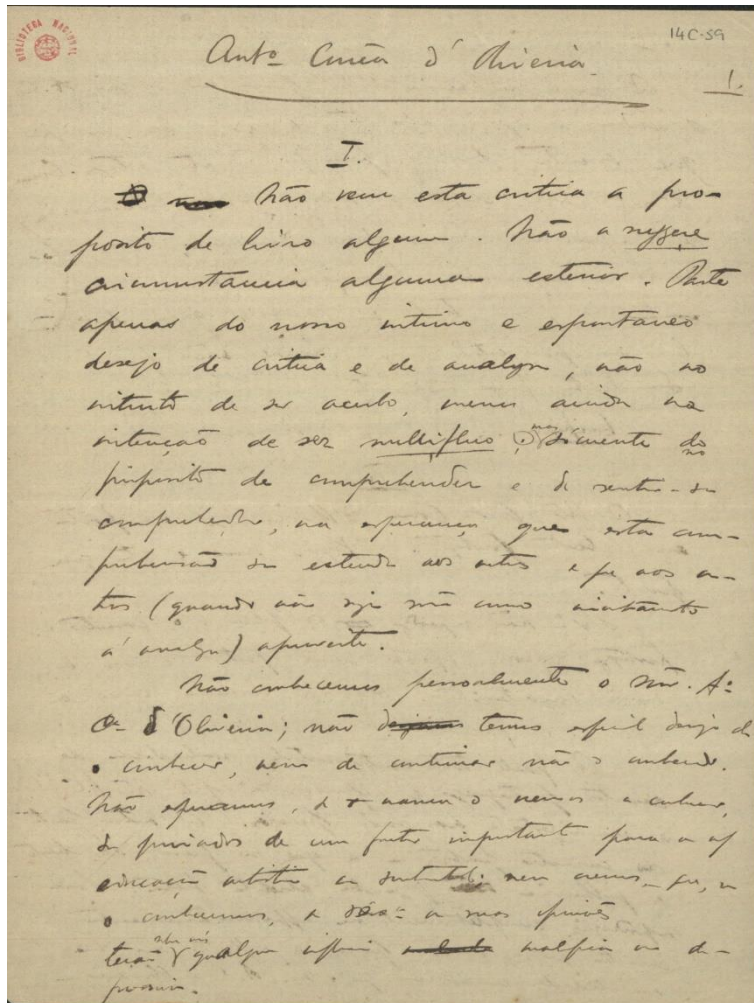 BIBLIOTECA NACIONAL
14C-59
Antº Corrêa d'Oliveira
1.
I.
Não vem esta critica a pro-
posito de livro algum. Não a suggere
circumstancia alguma exterior. Parte
apenas do nosso intimo e espontaneo
desejo de critica e de analyse, não no
intuito de ser acerbo, menos ainda na
intenção de ser mellifluo, mas sómente do
no
proposito de comprehender e de sentir-se
comprehender, na esperança que esta com-
prehensão se estenda aos outros e que aos ou-
tros (quando não seja senão como incitamento
á analyse) aproveite.
Não conhecemos pessoalmente o snr. Aº
Cª d'Oliveira; não temos desejo de
o conhecer, nem de continuar não o conhecendo.
Não a conhecer,
de privados de um importante para a
artistica nem cremos que, se
o conhecessemos, a as suas opiniões
sobre nós
teria qualquer